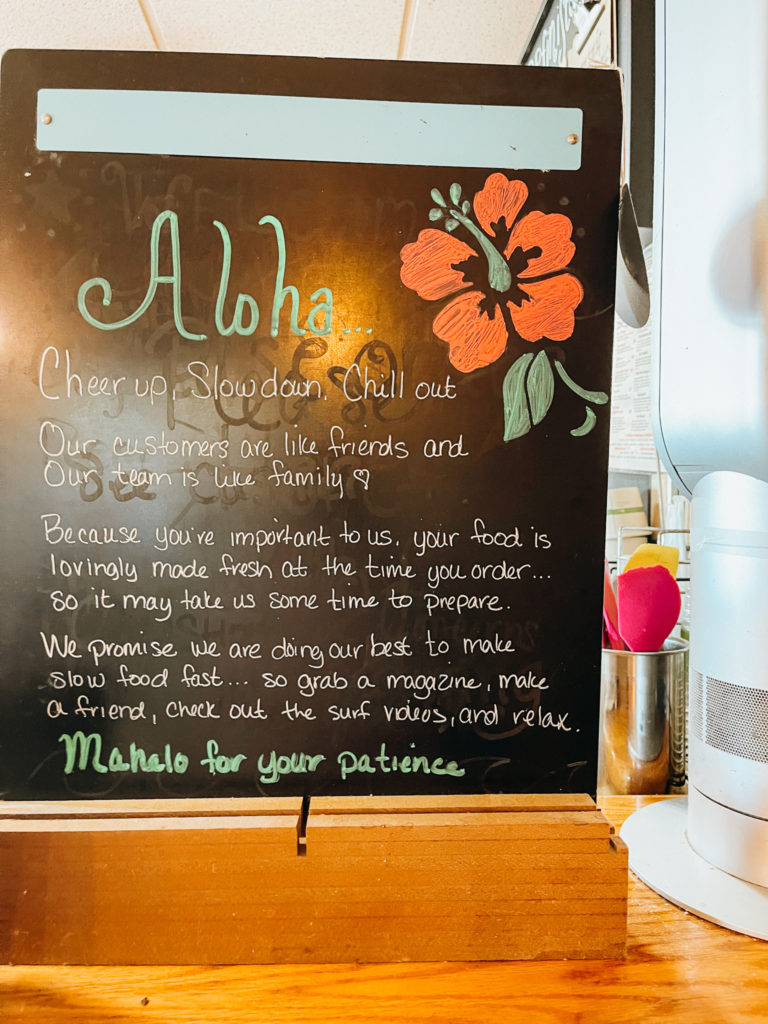 Aloha...
Cheer up, Slow down, Chill out
Our customers are like friends and
Our team is like family ♡
Because you're important to us, your food is
lovingly made fresh at the time you order...
so it may take us some time to prepare.
We promise we are doing our best to make
slow food fast... so grab a magazine, make
a friend, check out the surf videos, and relax.
Mahalo for your patience